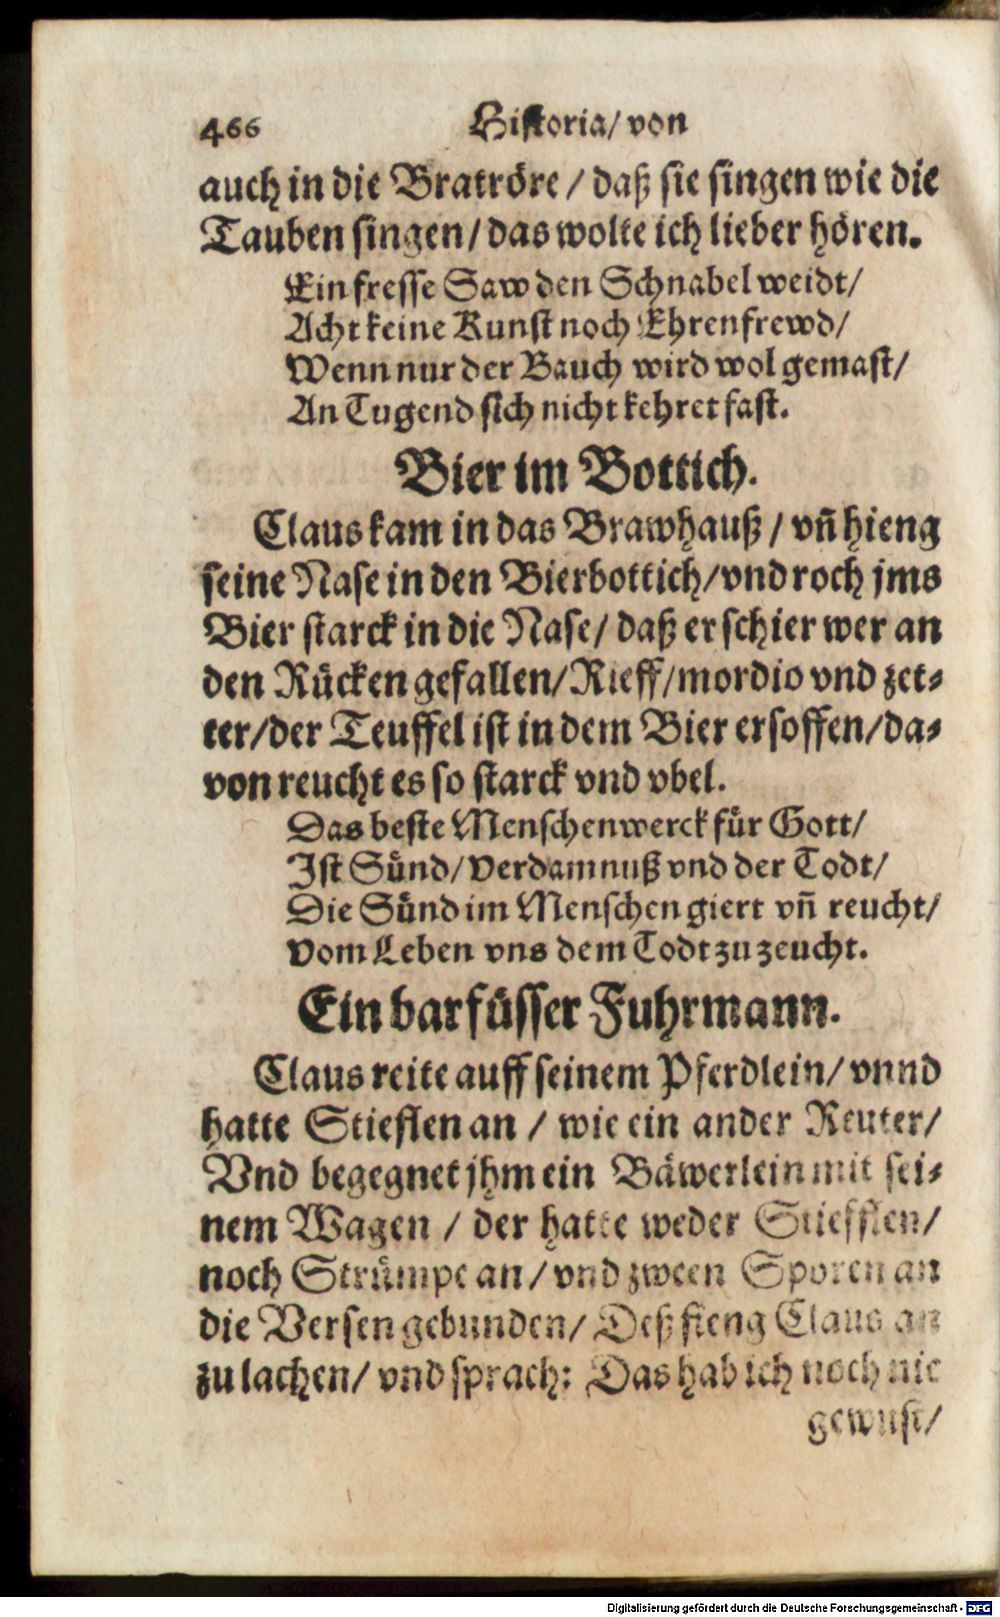 466 Historia/ von
auch in die Bratröre / daß sie singen wie die
Tauben singen/ das wolte ich lieber hören.
Ein fresse Saw den Schnabel weidt/
Acht keine Kunst noch Ehrenfrewd/
Wenn nur der Bauch wird wol gemast/
An Tugend sich nicht kehret fast.
Bier im Bottich.
Claus kam in das Brawhauß / vñ hieng
seine Nase in den Bierbottich/ vnd roch jms
Bier starck in die Nase/ daß er schier wer an
den Rücken gefallen/ Rieff/ mordio vnd zet-
ter/ der Teuffel ist in dem Bier ersoffen/ da-
von reucht es so starck vnd vbel.
Das beste Menschenwerck für Gott/
Ist Sünd/ Verdamnuß vnd der Todt/
Die Sünd im Menschen giert vñ reucht/
Vom Leben vns dem Todt zu zeucht.
Ein barfüsser Fuhrmann.
Claus reite auff seinem Pferdlein/ vnnd
hatte Stieflen an / wie ein ander Reuter/
Vnd begegnet jhm ein Bäwerlein mit sei-
nem Wagen / der hatte weder Stiefflen/
noch Strümpe an/ vnd zween Sporen an
die Versen gebunden/ Deß fieng Claus an
zu lachen/ vnd sprach: Das hab ich noch nie
gewust/
Digitalisierung gefördert durch die Deutsche Forschungsgemeinschaft - DFG